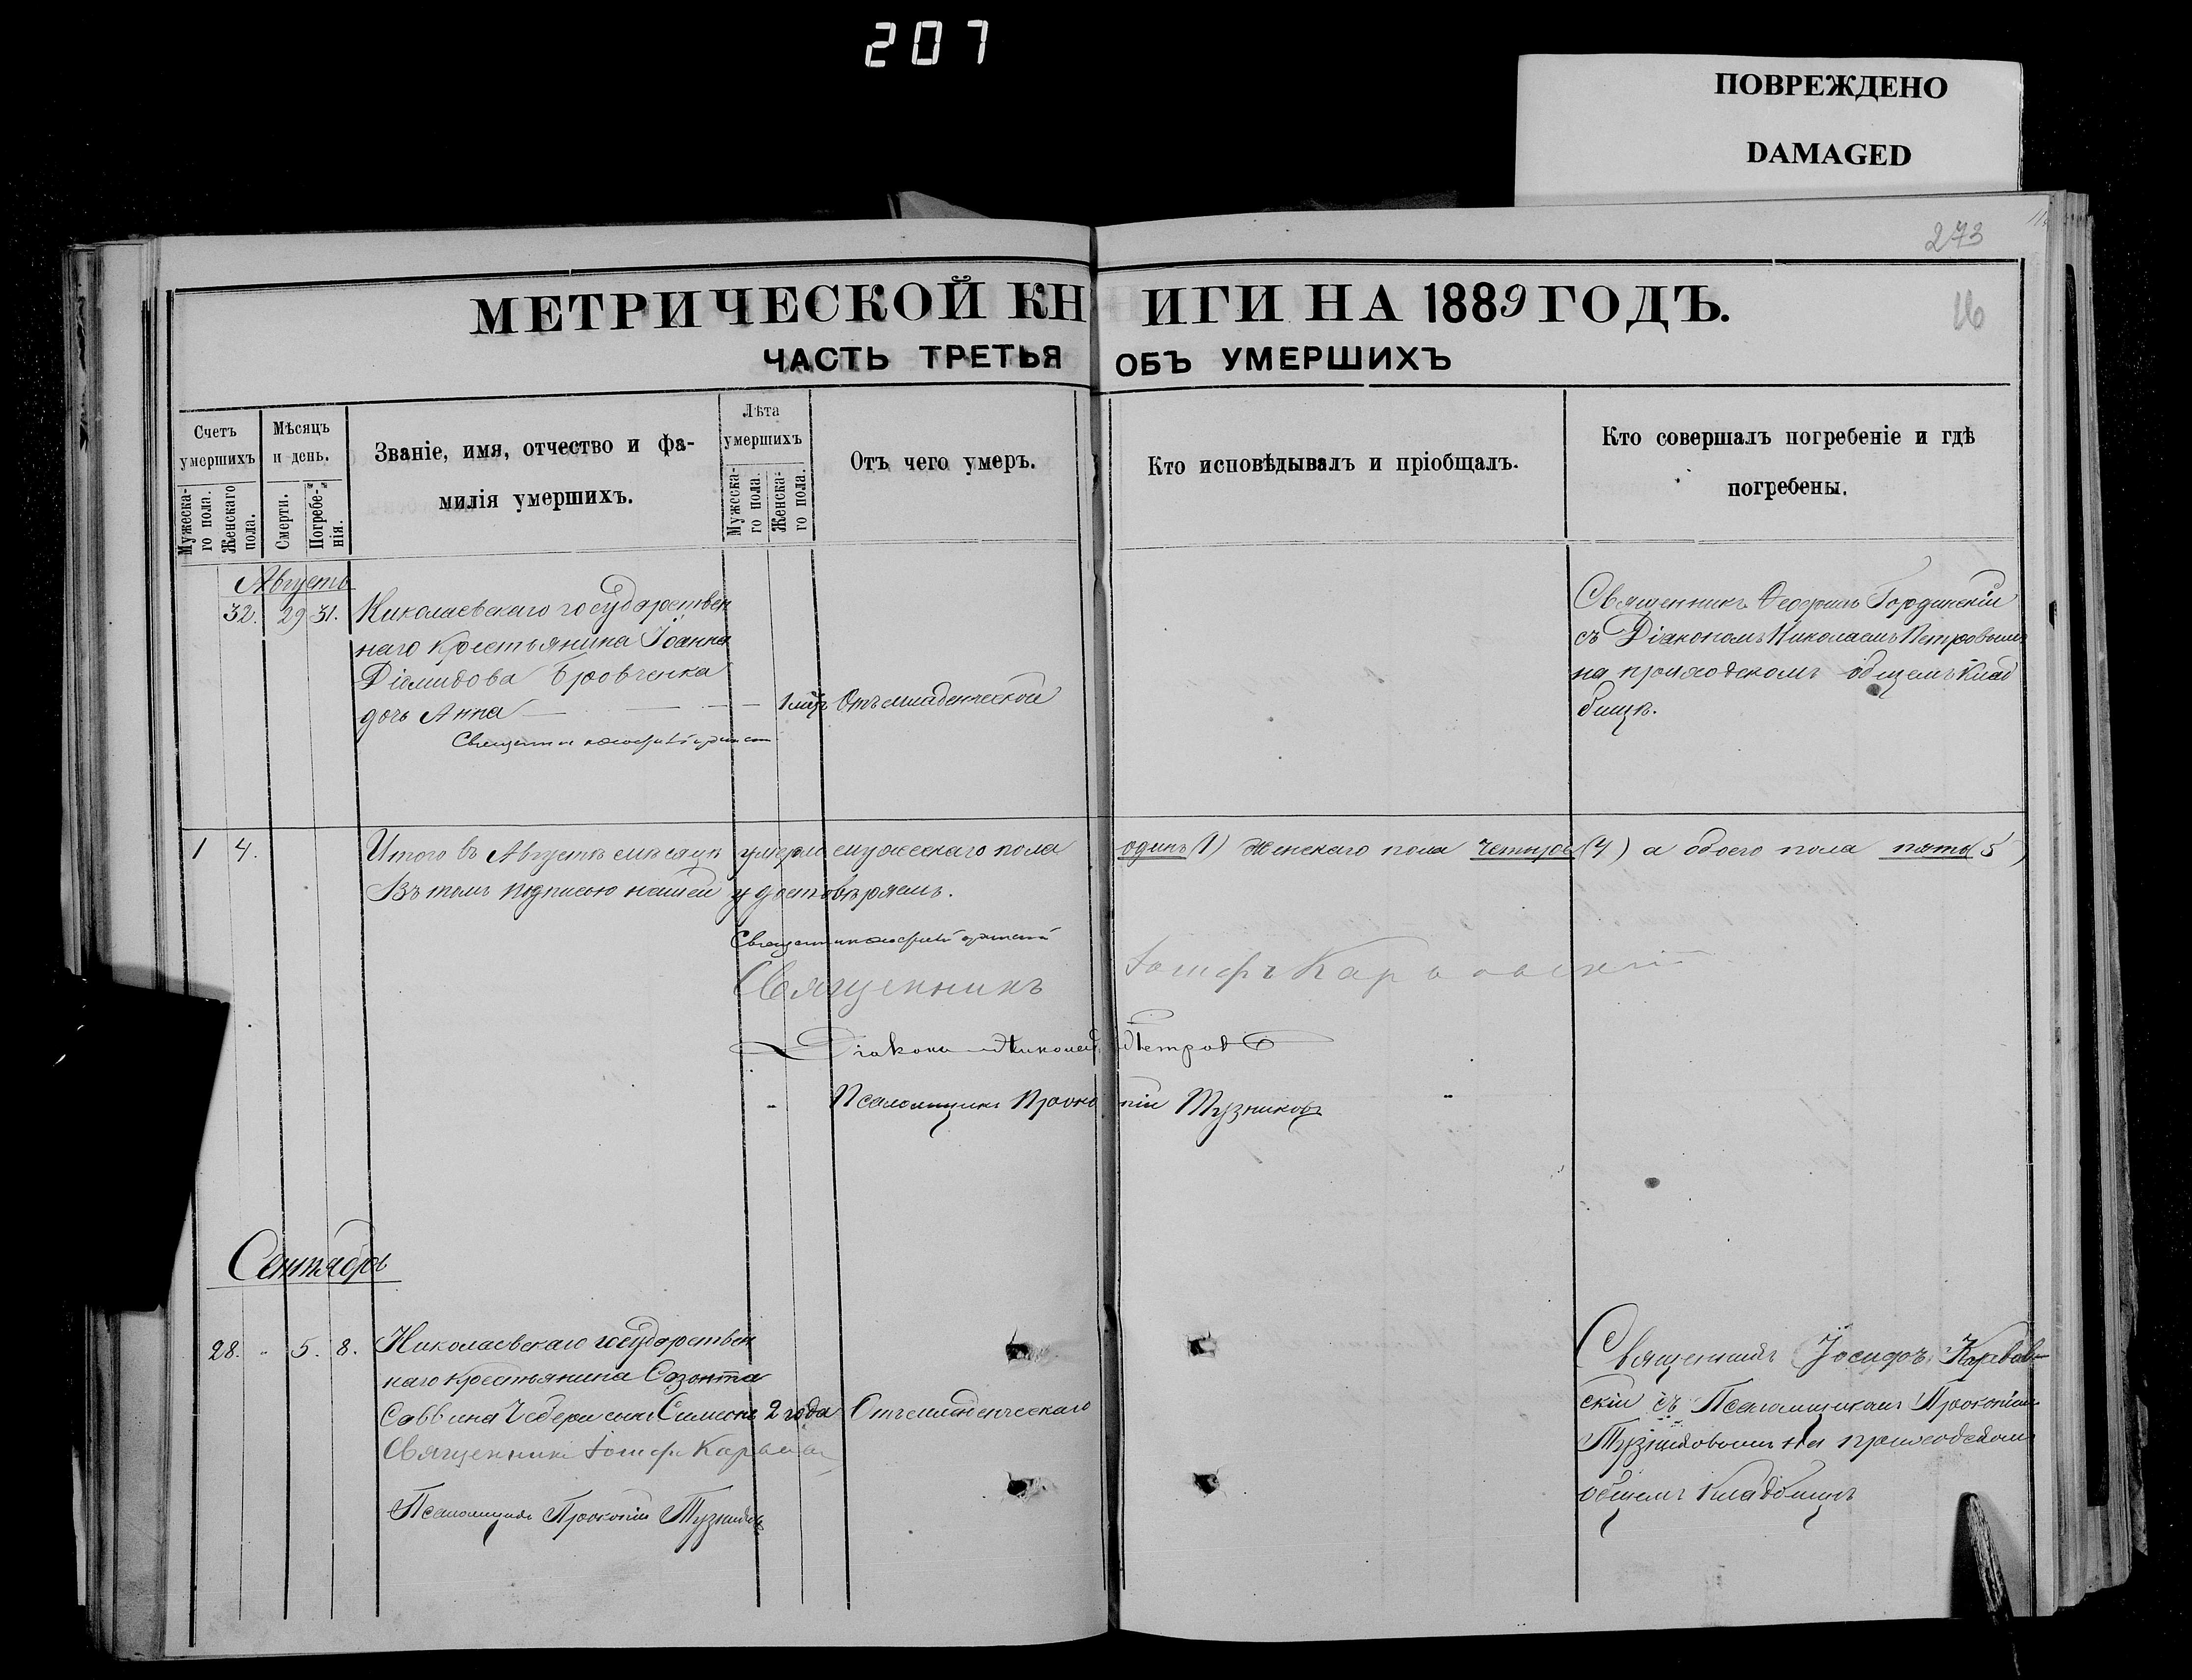 207
ПОВРЕЖДЕНО
DAMAGED
273
16
МЕТРИЧЕСКОЙ КНИГИ НА 1889 ГОДЪ.
ЧАСТЬ ТРЕТЬЯ ОБЪ УМЕРШИХЪ
Счетъ умершихъ
Мужескаго пола.
Женскаго пола.
Мѣсяцъ и день.
Смерти.
Погребенія.
Званіе, имя, отчество и фамилія умершихъ.
Лѣта умершихъ
Мужескаго пола.
Женскаго пола.
Отъ чего умеръ.
Кто исповѣдывалъ и пріобщалъ.
Кто совершалъ погребеніе и гдѣ погребены.
Августъ
32. 29 31. Николаевскаго государствен
наго крестьянина Іоанна
Діомидова Бровченка
дочь Анна 1 мѣс. Отъ младенческой
Священникъ
Священникъ Ѳеофилъ Гординскій
съ Діакономъ Николаемъ Петровымъ
на приходскомъ общемъ клад
бищѣ.
1 4. Итого въ Августѣ мѣсяцѣ умерло мужескаго пола одинъ (1) женскаго пола четыре (4) а обоего пола пять (5)
Въ томъ подписью нашей удостовѣряемъ.
Священникъ
Священникъ Іосифъ Карвовскій
Діаконъ Николай Петровъ
Псаломщикъ Прокопій Тузниковъ
Сентябрь
28. " 5. 8. Николаевскаго государствен
наго крестьянина Созонта
Саввина Чебери сынъ Симеонъ 2 года Отъ младенческаго
Священникъ Іосифъ
Псаломщикъ Прокопій Тузниковъ
Священникъ Іосифъ Карвов-
скій съ Псаломщикомъ Прокопіемъ
Тузниковымъ на приходскомъ
общемъ кладбищѣ